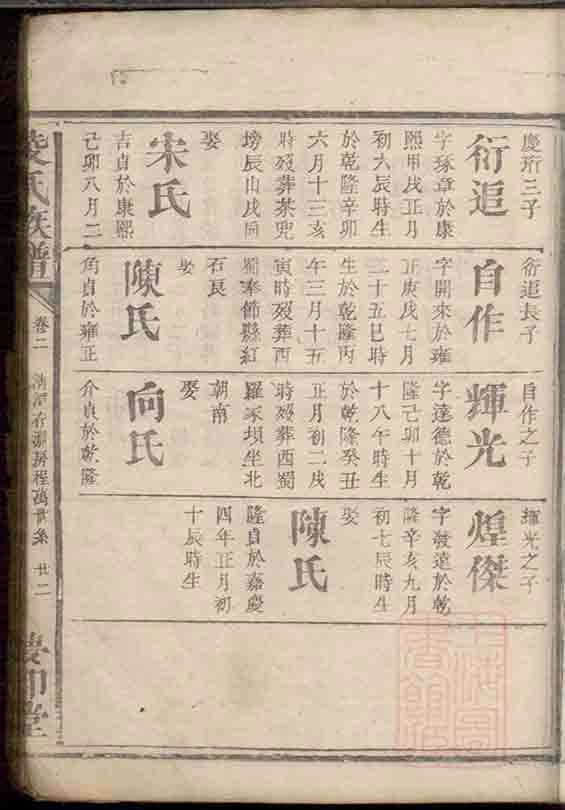 慶珩三子
衍洰
字琢章於康
熙甲戌正月
初六辰時生
於乾隆辛卯
六月十三亥
時歿葬茶兜
塝辰山戌向
娶
宋氏
吉貞於康熙
己卯八月二
衍洰長子
自作
字開來於雍
正庚戌七月
二十五巳時
生於乾隆丙
午三月十五
寅時歿葬西
蜀奉節縣紅
石艮
娶
陳氏
角貞於雍正
自作之子
輝光
字達德於乾
隆己卯十月
十八午時生
於乾隆癸丑
正月初二戌
時歿葬西蜀
羅家壩坐北
朝南
娶
向氏
介貞於乾隆
輝光之子
煌傑
字發遠於乾
隆辛亥九月
初七辰時生
娶
陳氏
隆貞於嘉慶
四年正月初
十辰時生
氏族譜
卷二
房程萬世系
廿二
堂